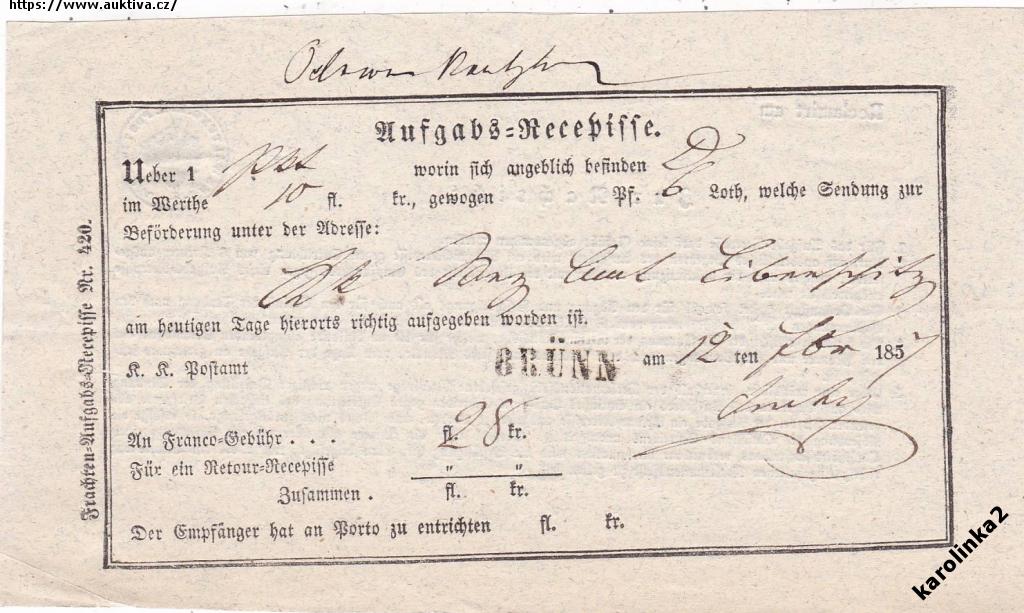 https://www.auktiva.cz/
Aufgabs=Recepisse.
Ueber 1 Pkt worin sich angeblich befinden D
im Werthe 10 fl. kr., gewogen Pf. 6 Loth, welche Sendung zur
Beförderung unter der Adresse:
Kk Bez Amt Eibenschitz
am heutigen Tage hierorts richtig aufgegeben worden ist.
K. K. Postamt BRÜNN am 12 ten 1857
An Franco=Gebühr . . . fl. 28 kr.
Für ein Retour=Recepisse " "
Zusammen . fl. kr.
Der Empfänger hat an Porto zu entrichten fl. kr.
Frachten=Aufgabs=Recepisse Nr. 420.
karolinka2